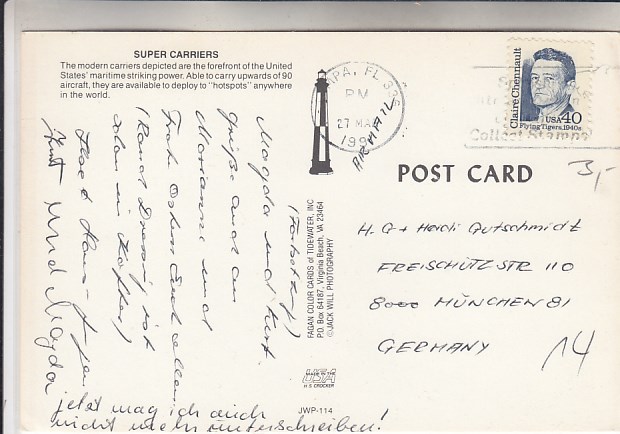 SUPER CARRIERS
The modern carriers depicted are the forefront of the United
States' maritime striking power. Able to carry upwards of 90
aircraft, they are available to deploy to "hotspots" anywhere
in the world.
Magda und Kurt.
Grüße auch an
Marianne und
Frohe Ostern Euch allen
(Ranch Dressing ist
schon im Koffer)
Hans-Jürgen
und Magda
jetzt mag ich auch
nicht mehr unterschreiben!
FAGAN COLOR CARDS of TIDEWATER, INC
P.O. Box 64187, Virginia Beach, VA 23464
©JACK WILL PHOTOGRAPHY
MADE IN THE
USA
H S CROCKER
JWP-114
PA, FL 336
PM
27 MA
199
AIRMAIL
Claire Chennault
USA 40
Flying Tigers, 1940s
Collect Stamps
POST CARD
3,-
H. G + Heidi Gutschmidt
FREISCHÜTZSTR 110
8000 MÜNCHEN 81
GERMANY
14